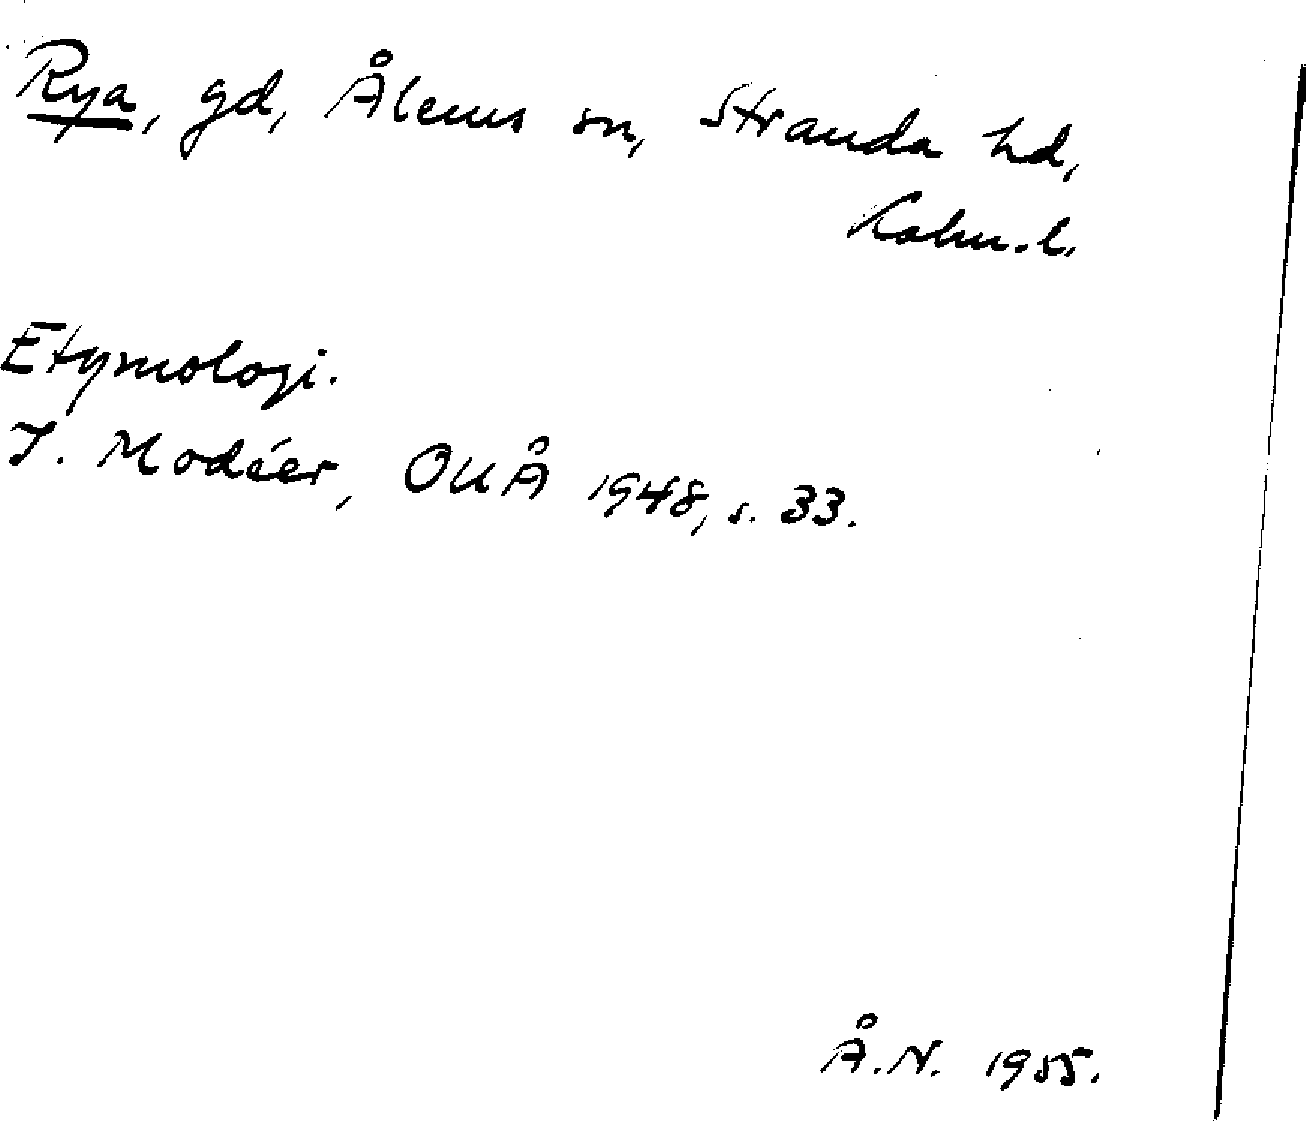 Rya, gd, Ålems sn, Stranda hd,
Kalm. l.
Etymologi.
I. Modéer, OUÅ 1948, s. 33.
Å.N. 1955.